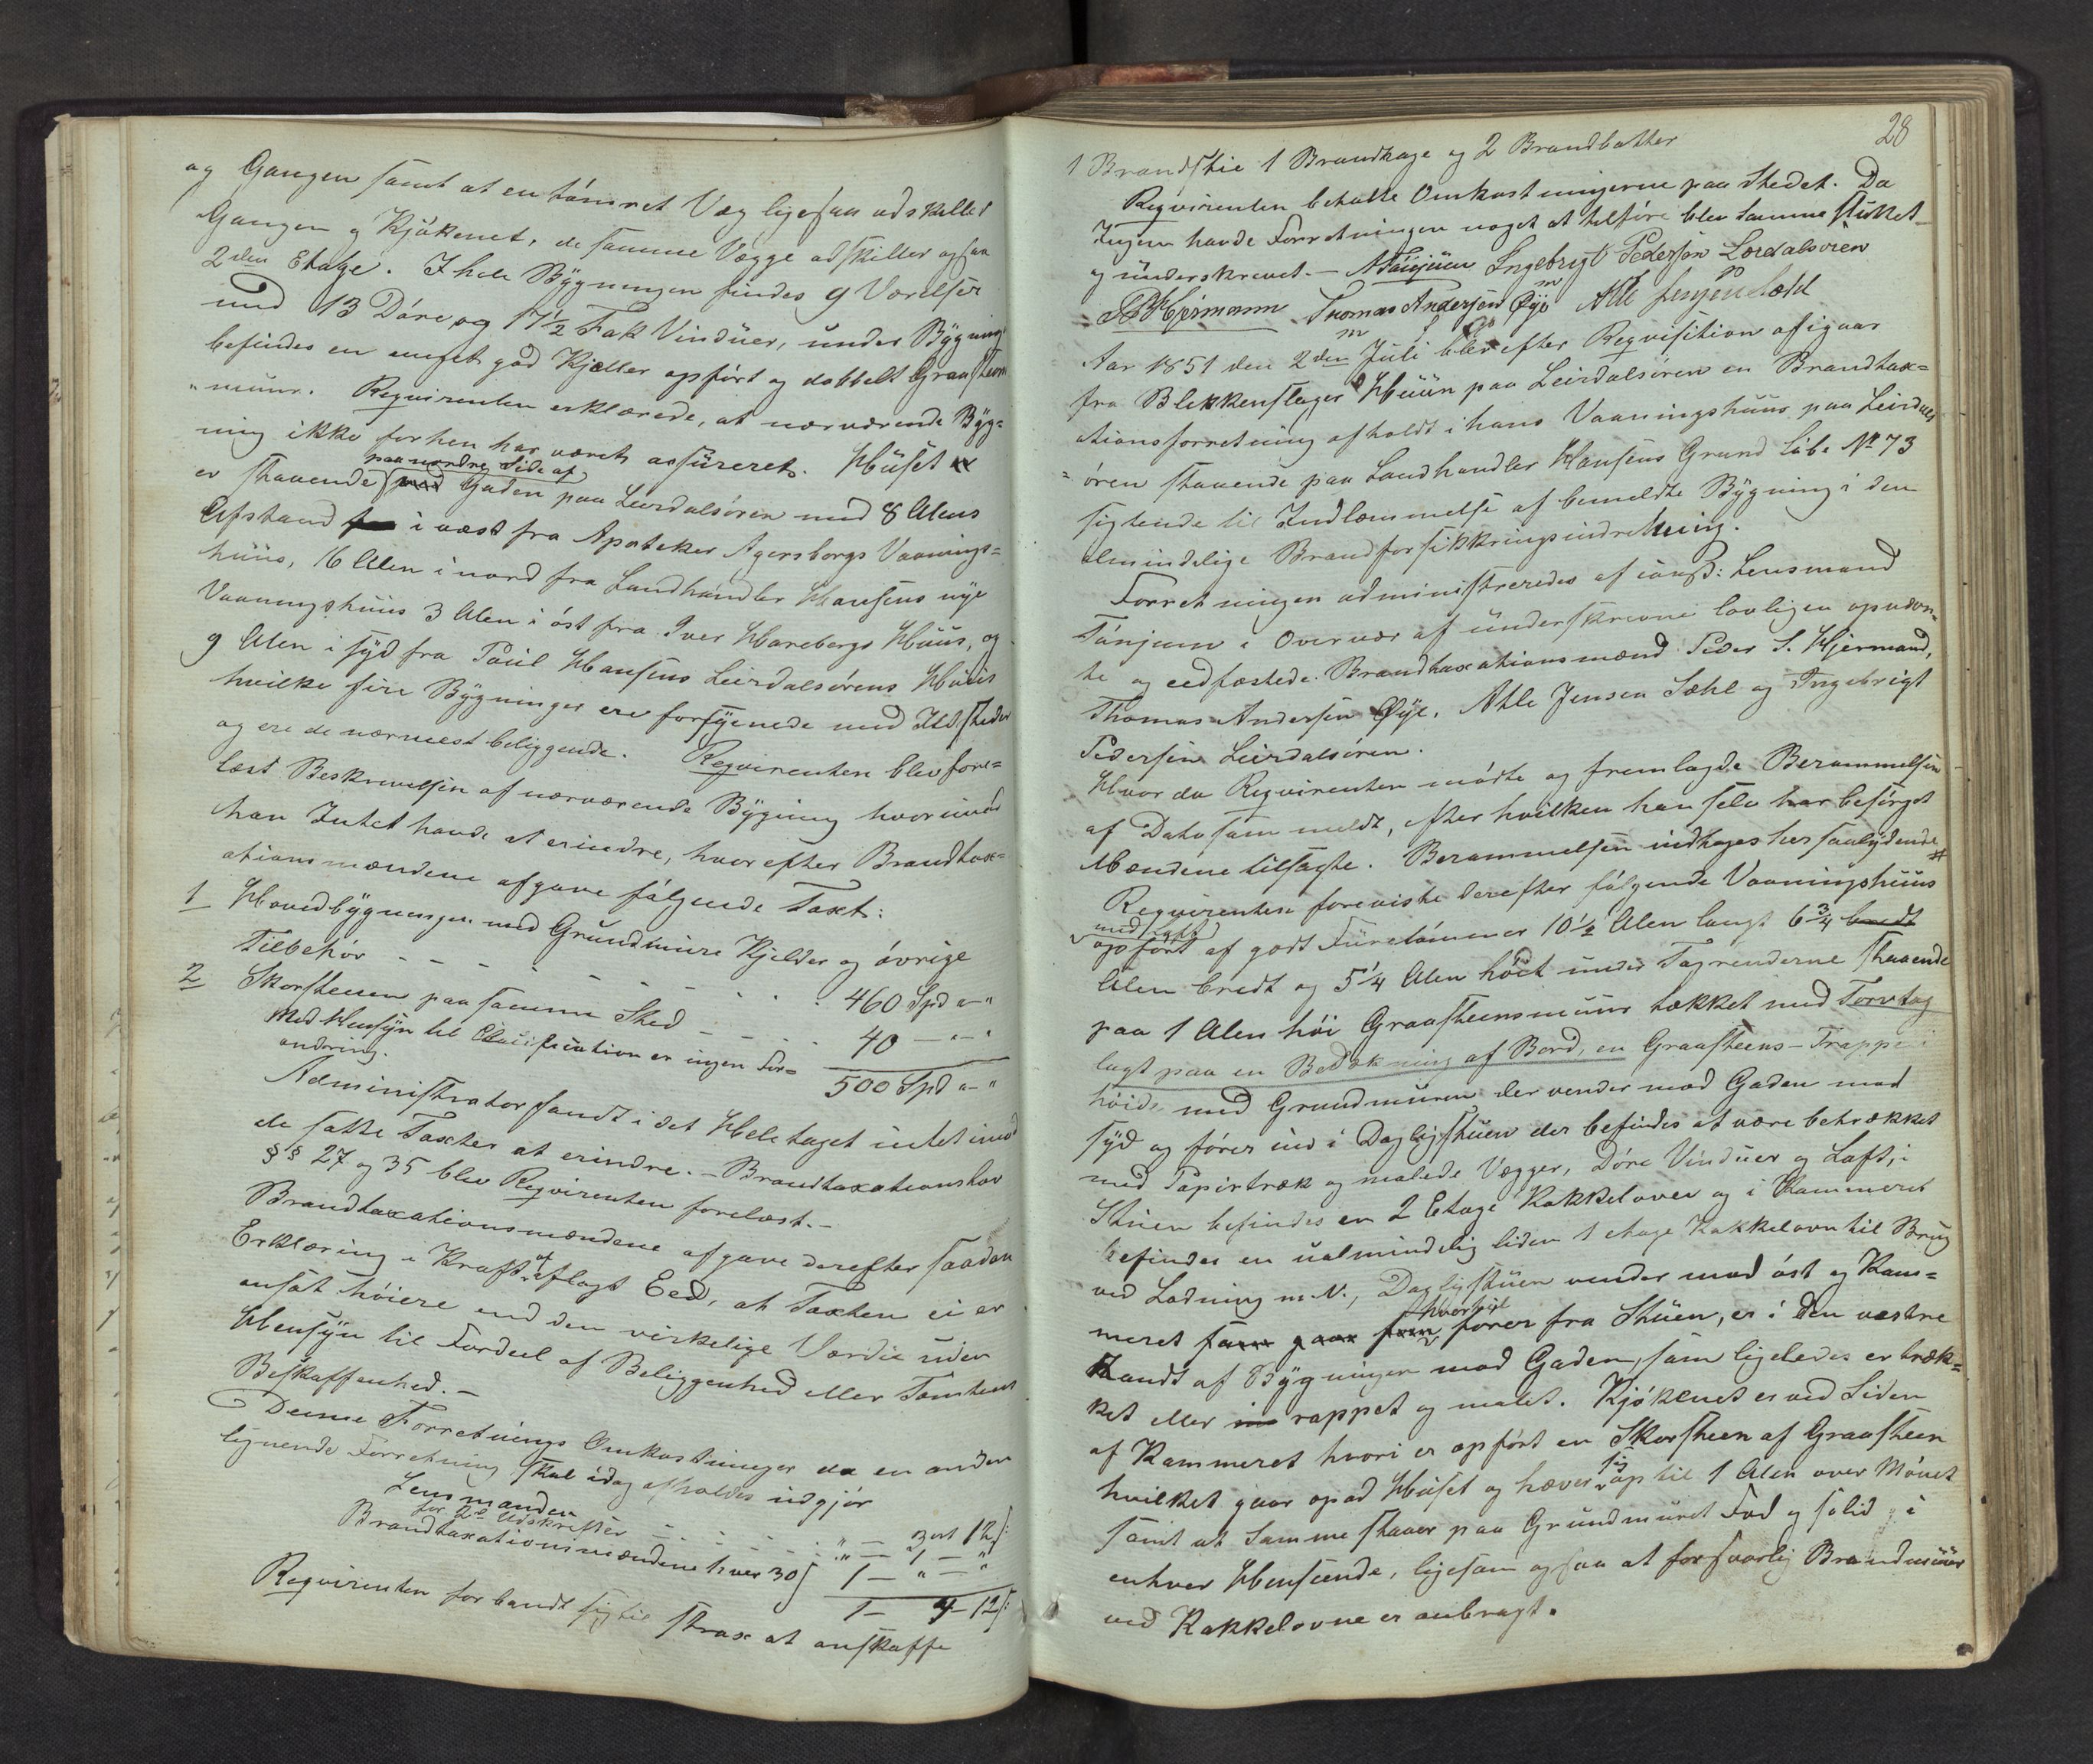 og Gangen samt at en tómret Væg ligesaa adskiller
Gangen og Kjökenet, de samme Vægge adskiller ogsaa
2den Etage. I hele Bÿgningen findes 9 Værelser
med 13 Döre og 17½ Fak Vindüer, ünder Bÿgning
befindes en meget god Kjelder opfört og dobbelt Graasteens
"müür. Reqvirenten erklærede, at nærværende Bÿg-
ning ikke forhen har været assüreret. Hüset
paa nordre Side af
er staaende mod Gaden paa Leirdalsören med 8 Alens
Afstand i væst fra Apoteker Agersborgs Vaanings-
hüüs, 16 Alen i nord fra Landhandler Hansens nÿe
Vaaningshüüs 3 Alen i öst fra Iver Harebergs Hüüs, og
9 Alen i sÿd fra Poül Hansens Leirdalsörens Hüüs
hvilke fire Bÿgninger ere forsÿnede med Ildsteder
og ere de nærmest beliggende. Reqvirenten blev fore-
læst Beskrivelsen af nærværende Bÿgning hvorimod
han Intet havde at erindre, hvorefter Brandtax-
ationsmændene afgave fölgende Taxt:
1 Hovedbÿgningen med Gründmüre Kjelder og óvrige
Tilbehör - - - - - - - 460 Spd "-"
2 Skorstenen paa samme Sted - - - 40 - "-"
Med Hensÿn til Classification er ingen For-
andring.
500 Spd "-"
Administrator fandt i det Hele taget intet imod
de satte Taxter at erindre. - Brandtaxationslov
§§ 27 og 35 blev Reqvirenten forelæst. -
Brandtaxationsmændene afgave derefter saadan
Erklæring i Kraft af aflagt Eed, at Taxten ei er
ansat höiere end den virkelige Værdie üden
Hensÿn til Fordeel af Beliggenhed eller Tomtens
Beskaffenhed. -
Denne Forretnings Omkostninger da en anden
lignende Forretning skal idag afholdes üdgjör
Lensmanden - - - " - 3 ort 12 s:
for 2de Udskrifter - - - " - 1 - "
Brandtaxationsmændene hver 30 s 1 - " - "
1 - 4 - 12 s:
Reqvirenten forbandt sig til strax at anskaffe
28
1 Brandstie 1 Brandhage og 2 Brandbötter
Reqvirenten betalte Omkostningerne paa Stedet. Da
Ingen havde Forretningen noget at tilföie blev Samme slüttet
og ünderskrevet. - A Tönjüm Ingebrigt Pedersön Lærdalsören
P Hjermann Thomas Andersön Öÿe Atle Jensen Sæhl
m m p
Aar 1851 den 2den Jüli blev efter Reqvisition af igaar
fra Blikkenslager Hüün paa Leirdalsören en Brandtax-
ationsforretning afholdt i hans Vaaningshüüs paa Leirdals
-ören staaende paa Landhandler Hansens Grund Löbe No 73
sigtende til Indlæmmelse af bemeldte Bÿgning i den
almindelige Brandforsikkringsindretning.
Forretningen administreredes af const: Lensmand
Tönjum i Overvær af ünderskrevne lovligen opnævn-
te og eedfæstede Brandtaxationsmænd Peder S. Hjermand,
Thomas Andersen Öÿe, Atle Jensen Sæhl og Ingebrigt
Pedersen Leirdalsören.
Hvor da Reqvirenten mödte og fremlagde Berammelsen
af Dato som meldt, efter hvilken han selv har besörget
Mændene tilsagte. Berammelsen indtages her saalÿdende #
Reqvirenten foreviste derefter fölgende Vaaningshüüs
opfört af godt Fürutömmer 10½ Alen langt 6¾ bredt
Alen bredt og 5¼ Alen höit ünder Tagrenderne staaende
paa 1 Alen höi Graasteensmüür tækket med Torvtag
lagt paa en Bedækning af Bord, en Graasteens-Trappe i
höide med Grundmüren der vender mod Gaden mod
sÿd og förer ind i Dagligstüen der befindes at være betrækket
med Papirtræk og malede Vægger, Döre Vindüer og Loft, i
Stüen befindes en 2 Etage Kakkelovn og i Kammeret
befindes en üalmindelig liden 1 etage Kakkelovn til Brüg
ved Lodning m. V., Dagligstüen vender mod óst og Kam-
hvortil
meret som gaar frem förer fra Stüen, er i den vestre
Kandt af Bÿgningen mod Gaden, som ligeledes er træk-
ket eller rappet og malet. Kjökenet er ved Siden
af Kammeret hvori er opfört en Skorsteen af Graasteen
sig
hvilket gaar opad Hüset og hæver op til 1 Alen over Mönet
samt at Samme staaer paa Gründmüret Fod og solid i
enhver Henseende, ligesom ogsaa at forsvarlig Brandmüür
ved Kakkelovne er anbragt.